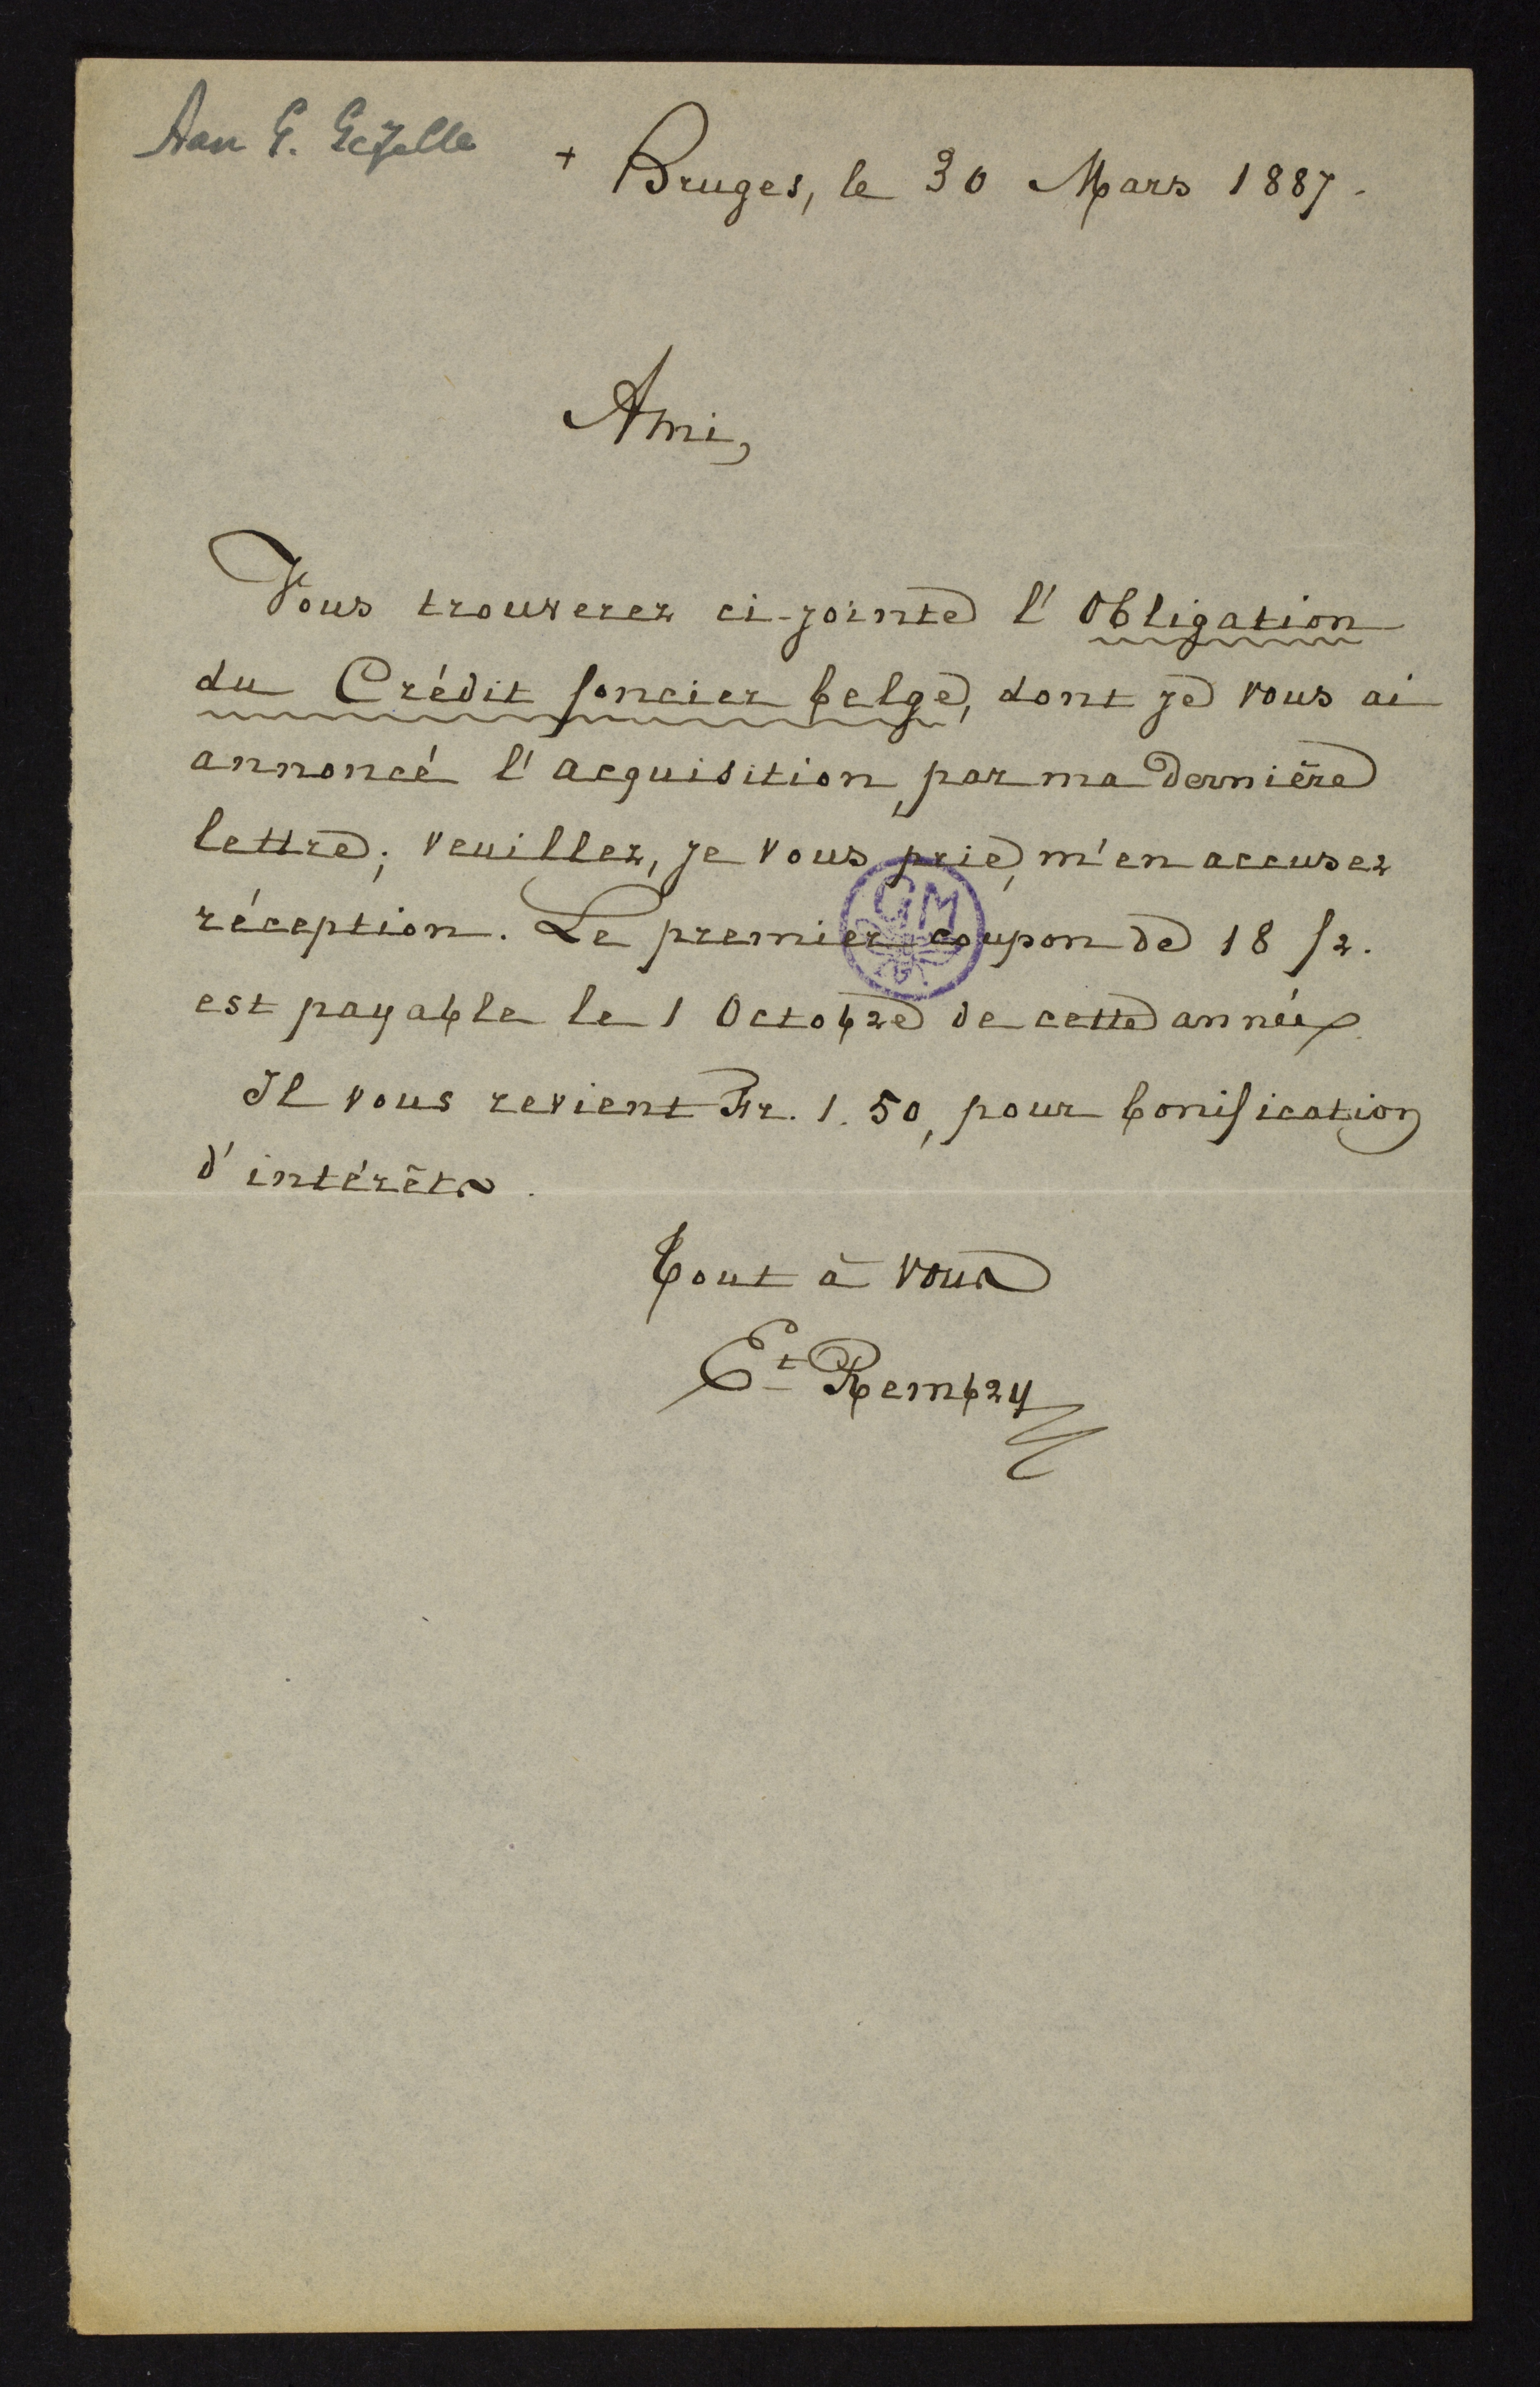 Aan G. Gezelle
+ Bruges, le 30 Mars 1887.
Ami,
Vous trouverez ci-jointe l'Obligation
du Crédit foncier belge, dont je vous ai
annoncé l'acquisition, par ma dernière
lettre; veuillez, je vous prie, m'en accuser
réception. Le premier coupon de 18 fr.
est payable le 1 Octobre de cette année.
Il vous revient Fr. 1.50, pour bonification
d'intérêts.
Tout à vous
Et Rembry
GM